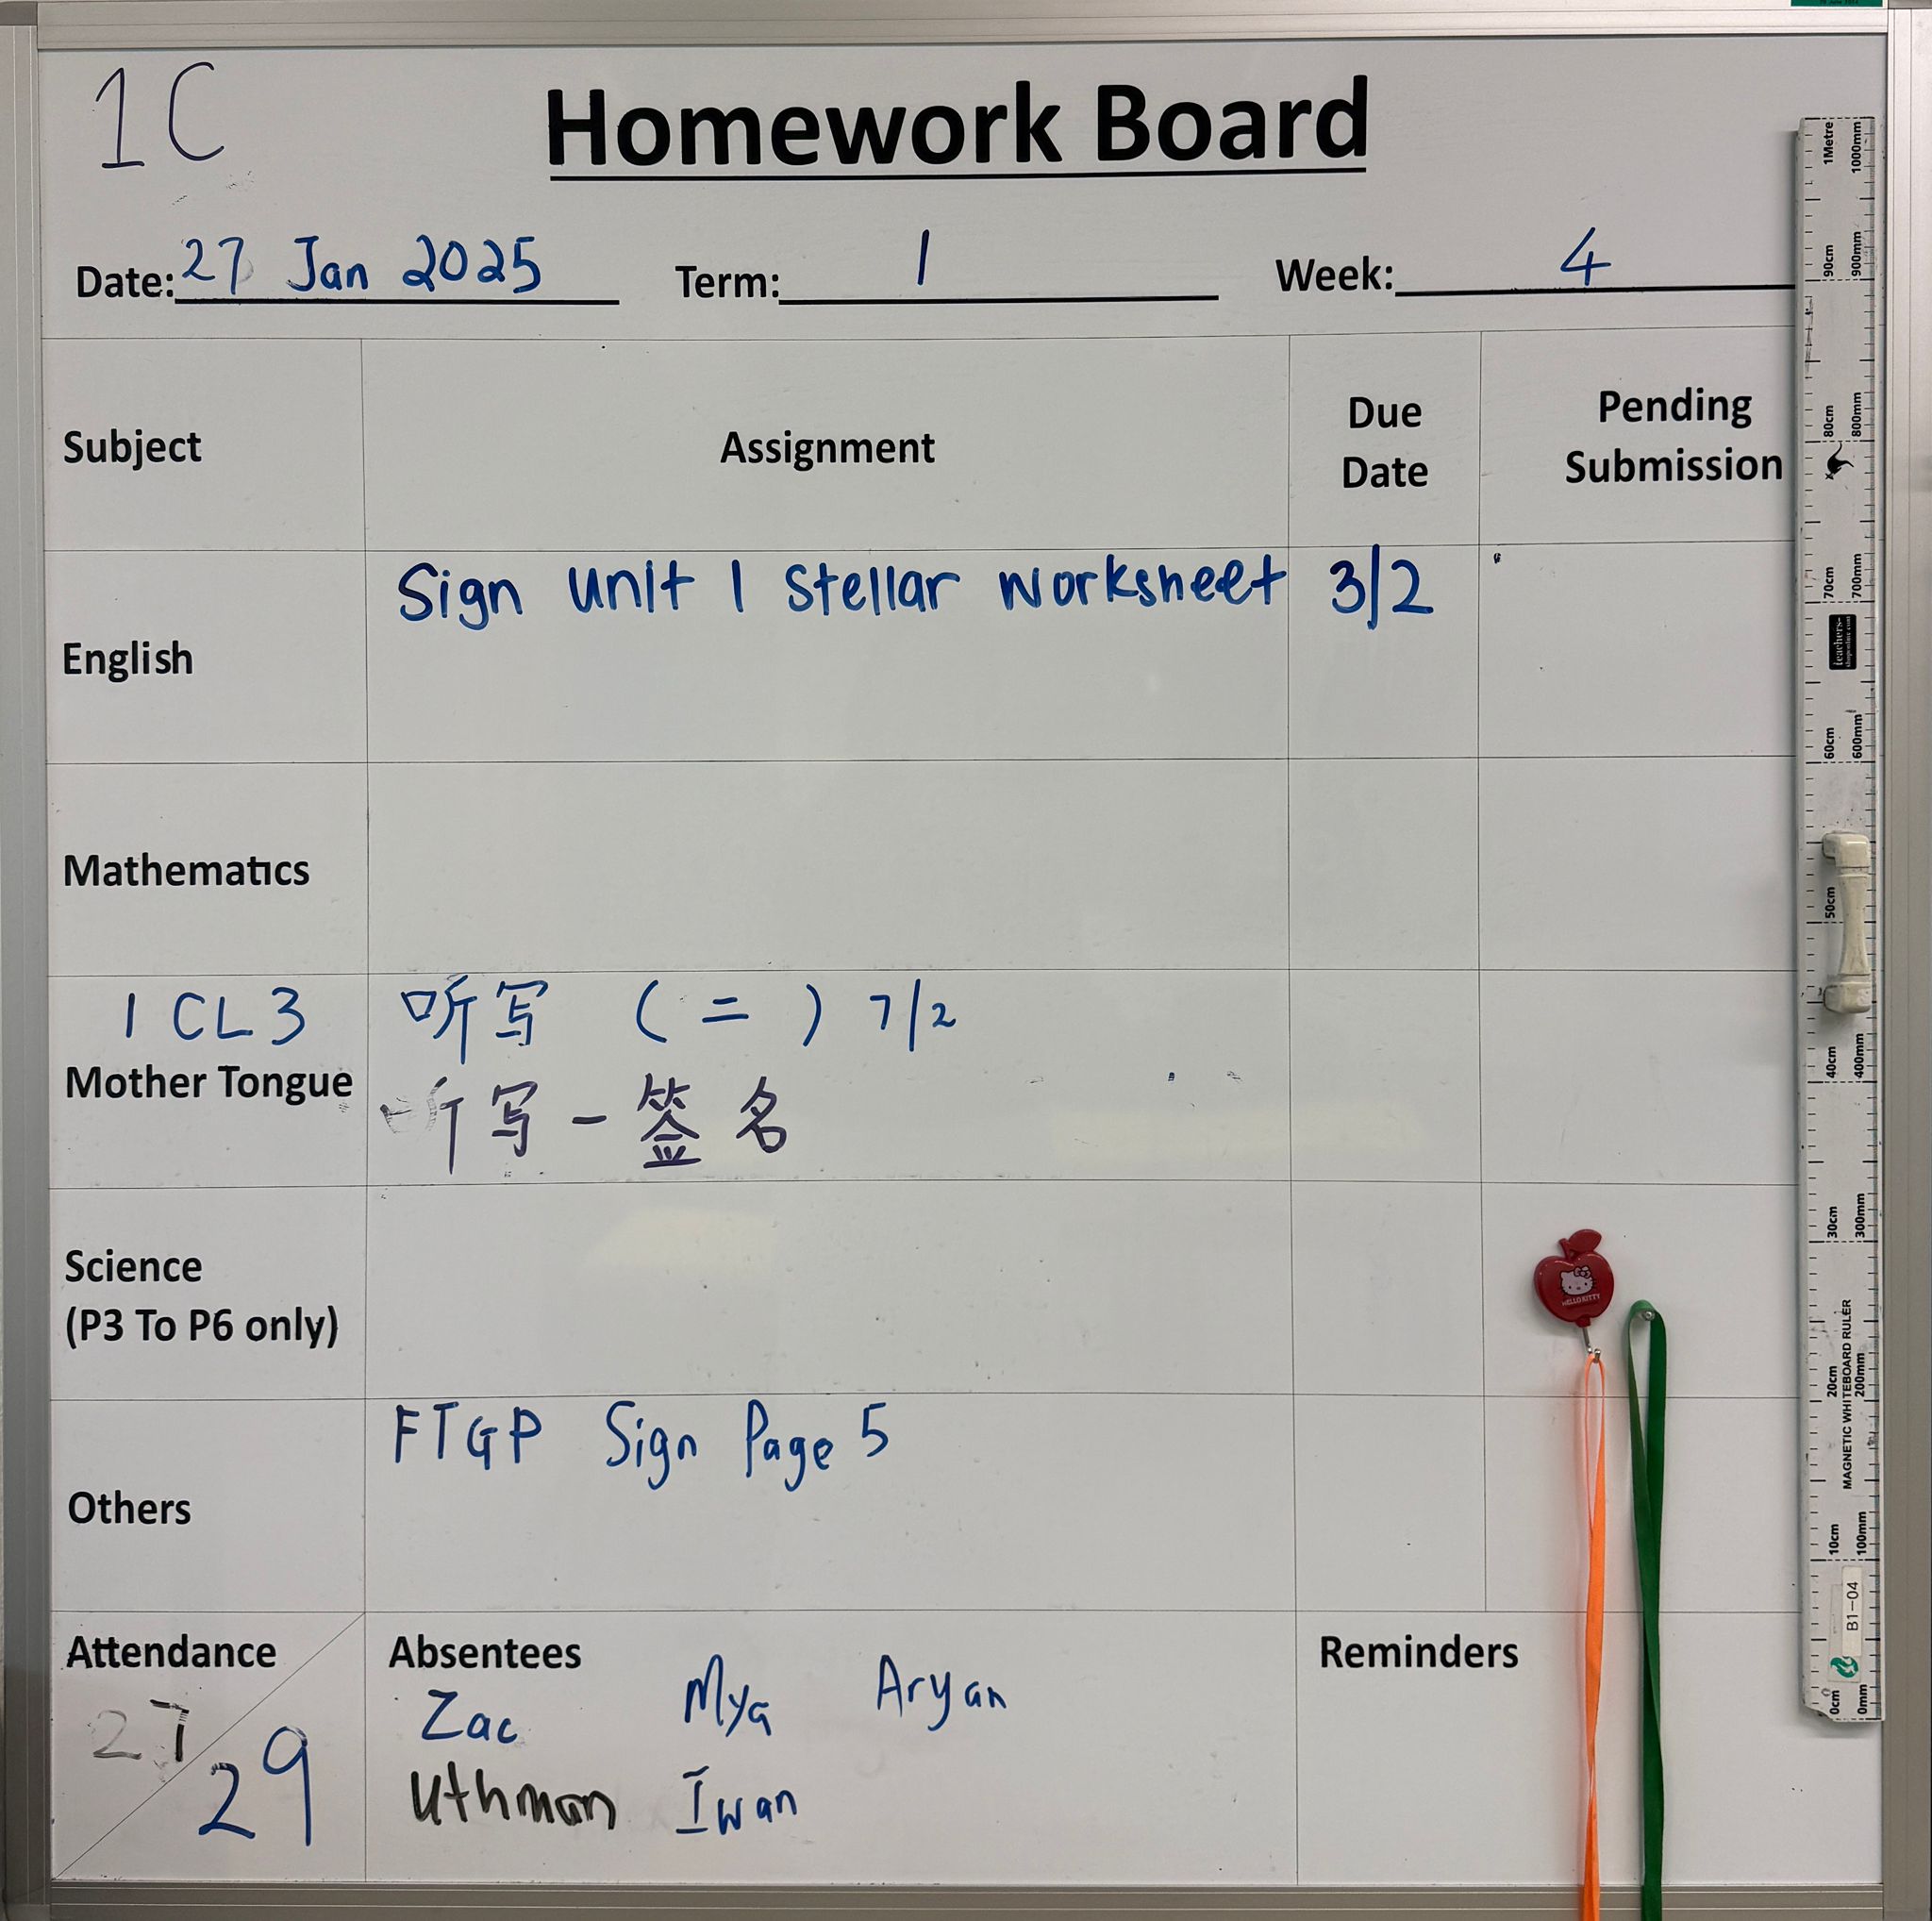 1C
Homework Board
Date: 27 Jan 2025 Term: 1 Week: 4
Subject Assignment Due Date Pending Submission
English Sign Unit 1 Stellar Worksheet 3/2
Mathematics
1 CL3 听写 (二) 7/2
Mother Tongue 听写 - 签名
Science
(P3 To P6 only)
Others FTGP Sign Page 5
Attendance 27/29
Absentees
Zac Mya Aryan
Uthman Iwan
Reminders
1Metre 1000mm
90cm 900mm
80cm 800mm
70cm 700mm
teachers-
60cm 600mm
50cm
40cm 400mm
30cm 300mm
20cm 200mm
MAGNETIC WHITEBOARD RULER
10cm 100mm
B1-04
0cm 0mm
HELLO KITTY